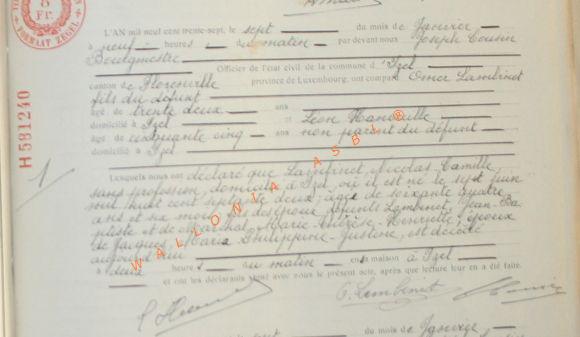 8
Fr.
FORMAAT ZEGEL
H531240
1
L'AN mil neuf cent trente-sept, le sept du mois de Janvier
à neuf heures du matin par devant nous Joseph Cousin
Bourgmestre
Officier de l'état civil de la commune d'Izel
canton de Florenville province de Luxembourg, ont comparu Omer Lambinet
fils du défunt
âgé de trente deux ans
domicilié à Izel et Léon
âgé de cinquante cinq ans non parent du défunt
domicilié à Izel
Lesquels nous ont déclaré que Lambinet, Nicolas-Camille,
sans profession, domicilié à Izel, où il est né le sept juin
mil huit cent septante deux, âgé de soixante quatre
ans et six mois, fils des époux défunts Lambinet, Jean-Ba-
ptiste et de Maréchal, Marie-Thérèse-Henriette, époux
de Jacques, Marie Philippine-Justine, est décédé
aujourd'hui
à deux heures du matin en sa maison à Izel
et ont les déclarants signé avec nous le présent acte, après que lecture leur en a été faite.
O. Lambinet
WALLONIA ASBL ®
sept du mois de Janvier